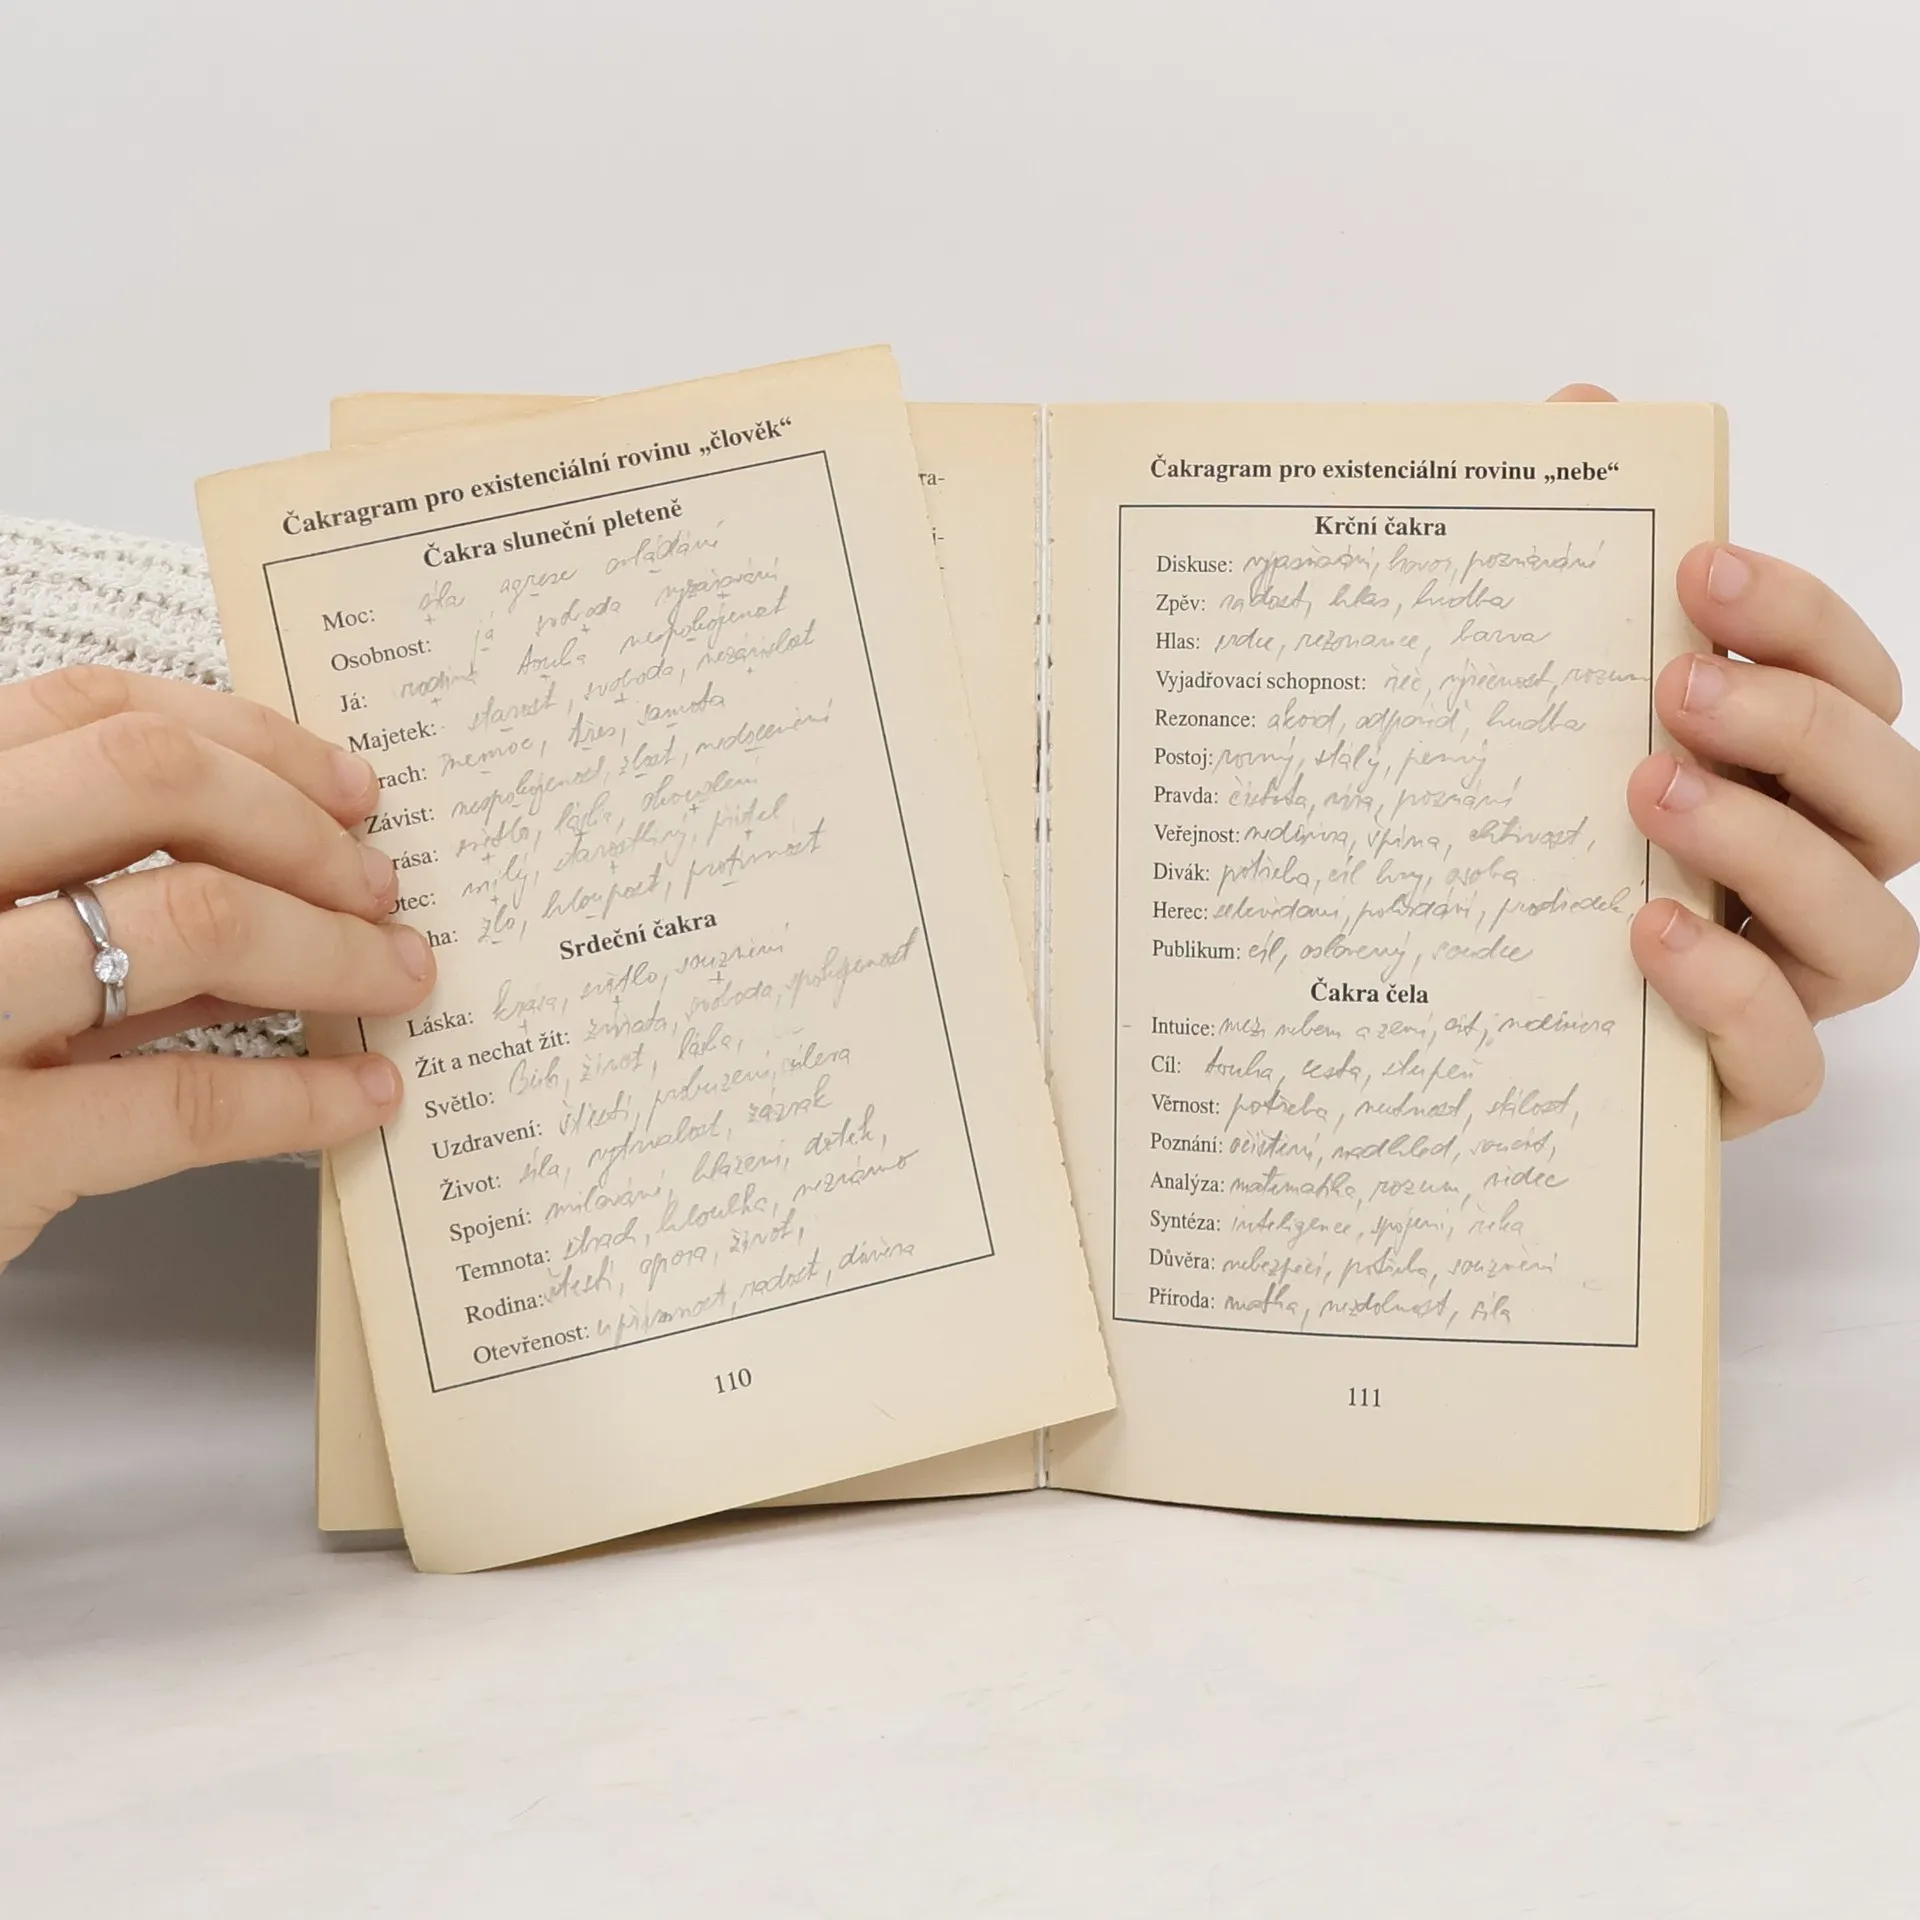 Čakragram pro existenciální rovinu „člověk“
Čakra sluneční pleteně
Moc: síla, agrese ovládání
Osobnost: já svoboda vyzařování
Já: rodina touha nespokojenost
Majetek: starost, svoboda, nezávislost
rach: nemoc, třes, samota
Závist: nespokojenost, zlost, nedocenění
rása: světlo, láska, okouzlení
Otec: milý, starostlivý, přítel
ha: zlo, hloupost, protivnost
Srdeční čakra
Láska: krása, světlo, souznění
Žít a nechat žít: zvířata, svoboda, spokojenost
Světlo: Bůh, život, láska,
Uzdravení: štěstí, probuzení, úleva
Život: síla, vytrvalost, zázrak
Spojení: milování, hlazení, dotek,
Temnota: strach, hloubka, neznámo
Rodina: štěstí, opora, život,
Otevřenost: upřímnost, radost, důvěra
110
ra-
i-
Čakragram pro existenciální rovinu „nebe“
Krční čakra
Diskuse: vyjasňování, hovor, poznávání
Zpěv: radost, hlas, hudba
Hlas: srdce, rezonance, barva
Vyjadřovací schopnost: řeč, výřečnost, rozum
Rezonance: akord, odpověď, hudba
Postoj: rovný, stálý, pevný
Pravda: čistota, víra, poznání
Veřejnost: nedůvěra, špína, chtivost,
Divák: potřeba, cíl hry, osoba
Herec: sebevědomí, prostředek,
Publikum: cíl, oslovený, soudce
Čakra čela
Intuice: mezi nebem a zemí, cit, nedůvěra
Cíl: touha, cesta, stupeň
Věrnost: potřeba, nutnost, stálost,
Poznání: očištění, nadhled, soucit,
Analýza: matematika, rozum, vědec
Syntéza: inteligence, spojení, řeka
Důvěra: nebezpečí, potřeba, souznění
Příroda: matka, nezdolnost, síla
111